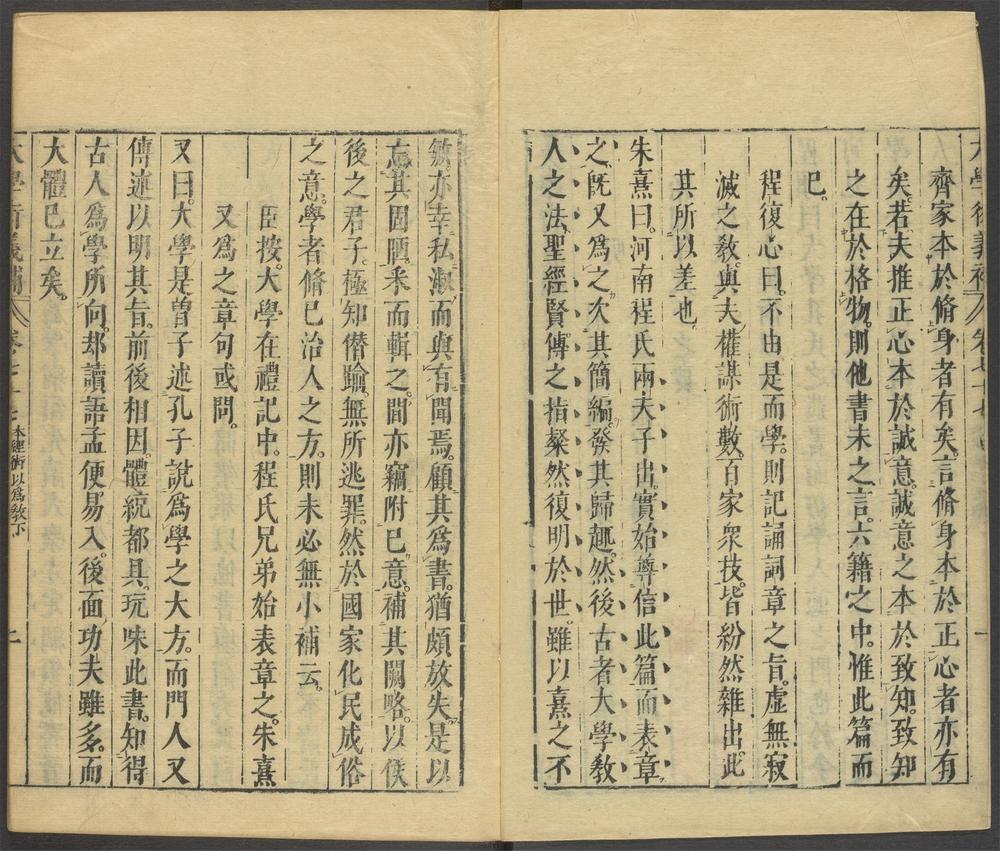 大學衍義補 卷七十七
齊家本於脩身者有矣。言脩身本於正心者亦有
矣。若夫推正心本於誠意。誠意之本於致知。致知
之在於格物。則他書未之言。六籍之中。惟此篇而
已。
程復心曰。不由是而學。則記誦詞章之旨。虛無寂
滅之敎。與夫權謀術數。百家衆技。皆紛然雜出。此
其所以差也
朱熹曰。河南程氏兩夫子出。實始尊信此篇而表章
之。旣又爲之次其簡編。發其歸趣。然後古者大學敎
人之法。聖經賢傳之指。粲然復明於世。雖以熹之不
敏。亦幸私淑而與有聞焉。顧其爲書。猶頗放失。是以
忘其固陋。釆而輯之。間亦竊附己意。補其闕略。以俟
後之君子。極知僭踰。無所逃罪。然於國家化民成俗
之意。學者脩已治人之方。則未必無小補云。
臣按。大學在禮記中。程氏兄弟始表章之。朱熹
又爲之章句或問。
又曰。大學是曾子述孔子說爲學之大方。而門人又
傳述以明其旨。前後相因。體統都具。玩味此書。知得
古人爲學所向。却讀語孟便易入。後面功夫雖多。而
大體已立矣。
大學衍義補 卷七十七 本經術以爲敎下 二